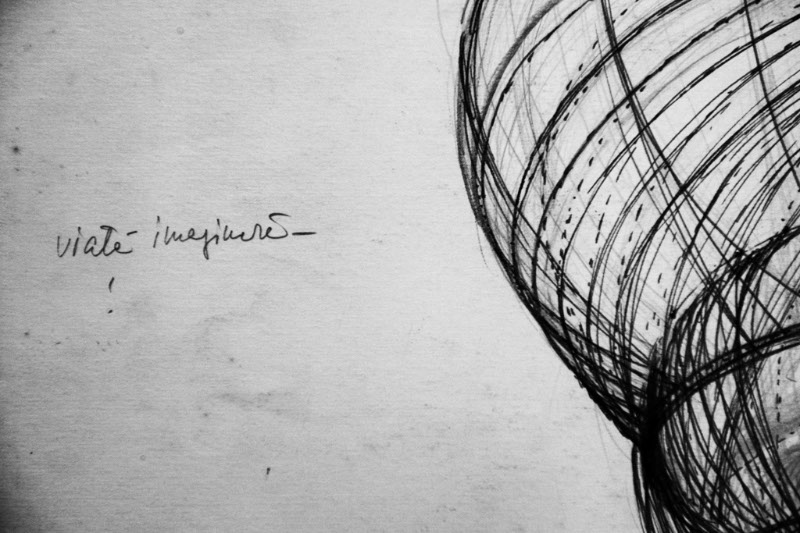 viață imaginară